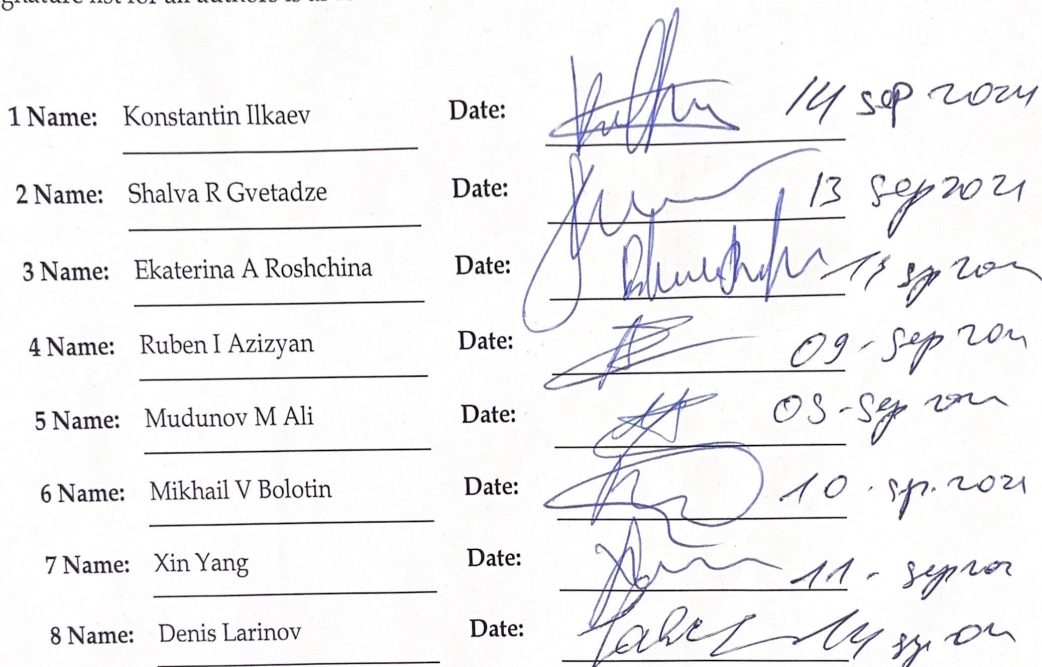 gnature list for all authors is
1 Name: Konstantin Ilkaev Date: 14 sep 2021
2 Name: Shalva R Gvetadze Date: 13 sep 2021
3 Name: Ekaterina A Roshchina Date: 13 sep
4 Name: Ruben I Azizyan Date: 09 - sep
5 Name: Mudunov M Ali Date: - sep
6 Name: Mikhail V Bolotin Date: 10 . sp. 2021
7 Name: Xin Yang Date: 11 - sep
8 Name: Denis Larinov Date: 14